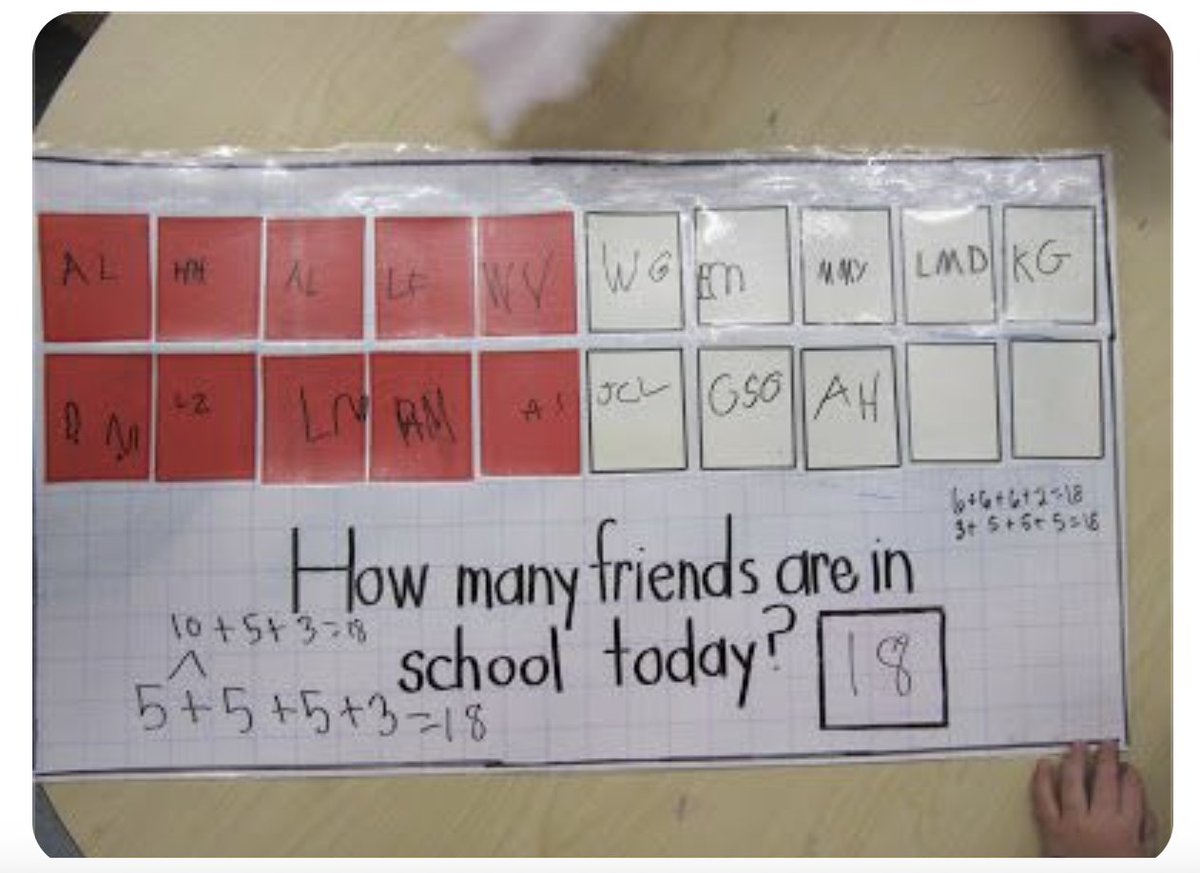 AL HH AL LF WV WG Em MMY LMD KG
LZ LN AM A JCL GSG AH
6+6+6+2=18
3+5+5+5=18
How many friends are in
10+5+3=18
school today? 18
5+5+5+3=18